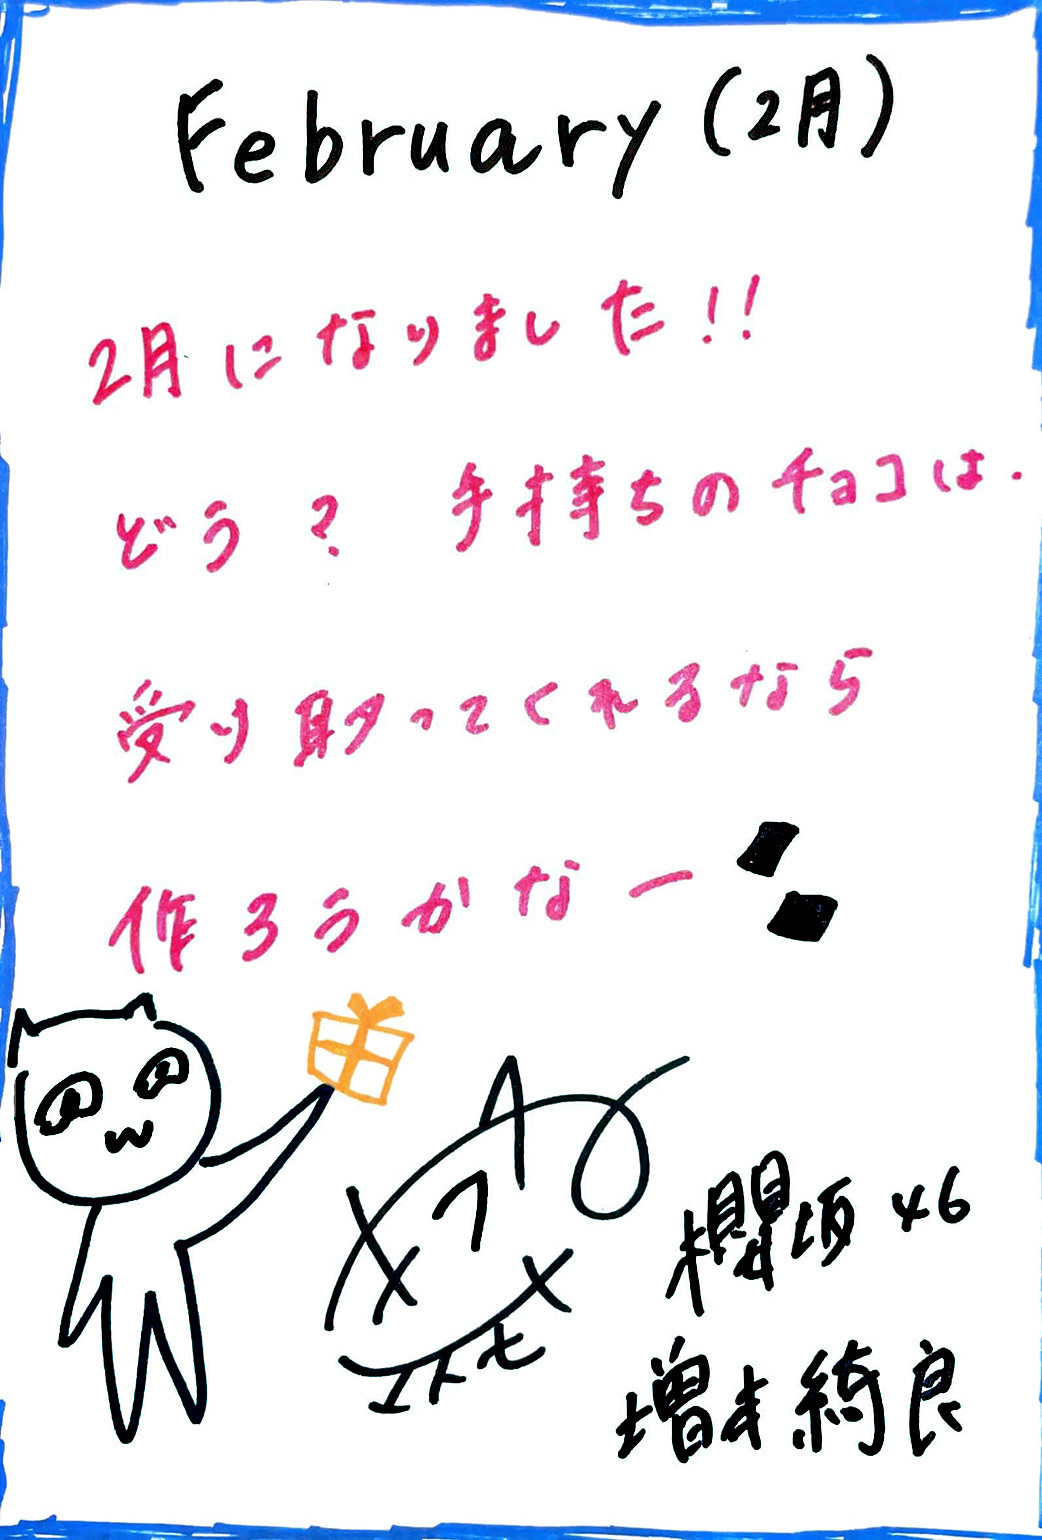 February (2月)
2月になりました!!
どう? 手持ちのチョコは.
受り取ってくれるなら
作ろうかなー
櫻坂46
増本綺良